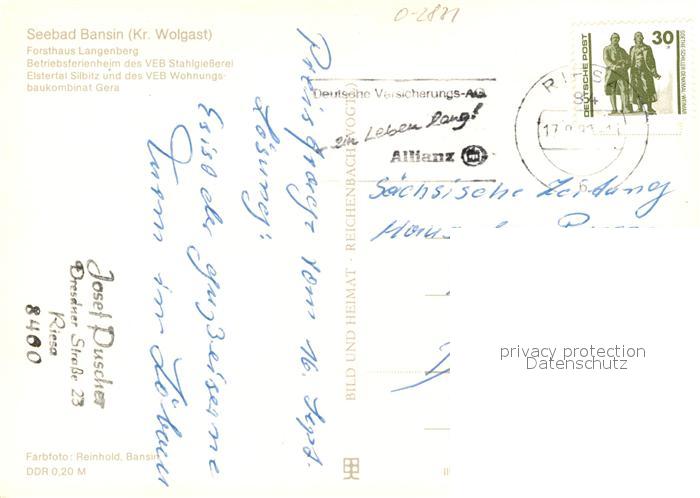 0-2821
Seebad Bansin (Kr. Wolgast)
Forsthaus Langenberg
Betriebsferienheim des VEB Stahlgießerei
Elstertal Silbitz und des VEB Wohnungs-
baukombinat Gera
Preisfrage vom 16. Sept.
Lösung:
Es ist der gußeiserne
Turm in Löbau
Josef Puscher
Dresdner Straße 23
Riesa
8400
Farbfoto: Reinhold, Bansin
DDR 0,20 M
BILD UND HEIMAT · REICHENBACH (VOGTL)
Deutsche Versicherungs-AG
ein Leben lang!
Allianz
RIES
84
DEUTSCHE POST
30
GOETHE-SCHILLER-DENKMAL · WEIMAR
Sächsische Zeitung
privacy protection
Datenschutz